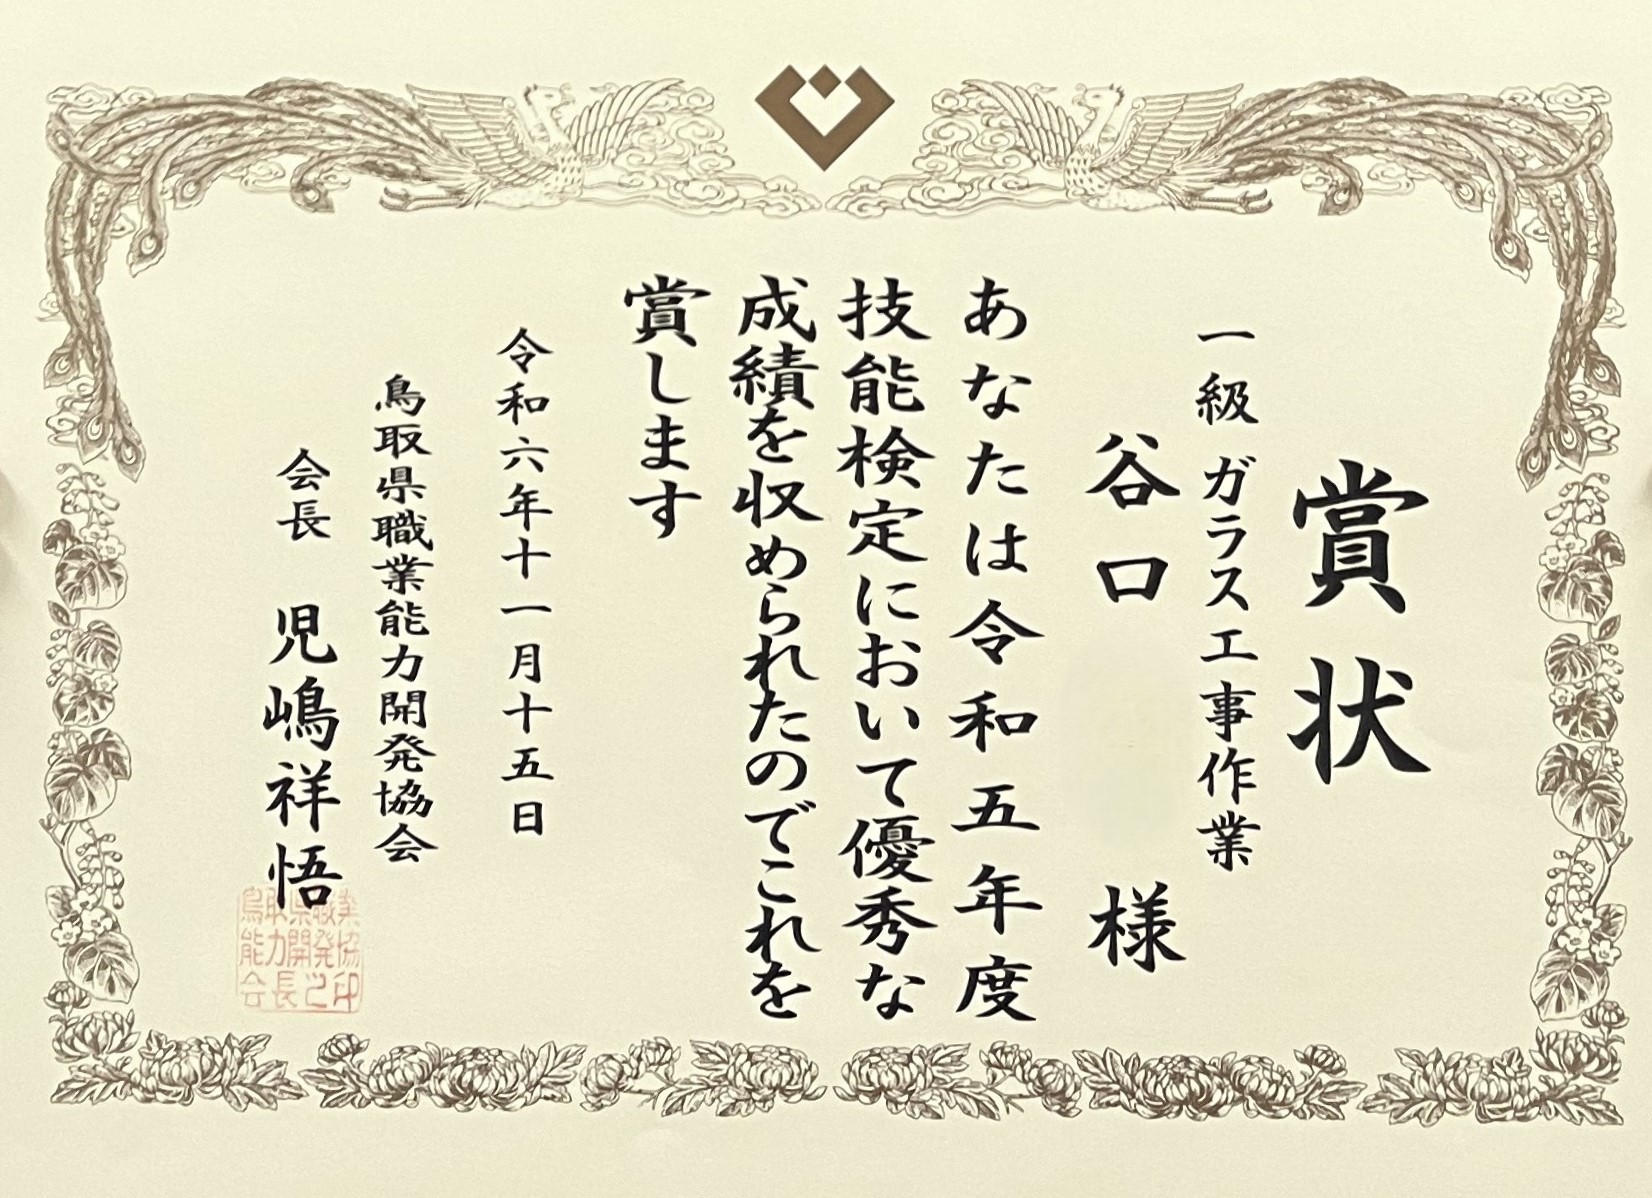 賞状
一級 ガラス工事作業
谷口 様
あなたは令和五年度
技能検定において優秀な
成績を収められたのでこれを
賞します
令和六年十一月十五日
鳥取県職業能力開発協会
会長 児嶋祥悟
鳥取県職業
能力開発協
会長之印